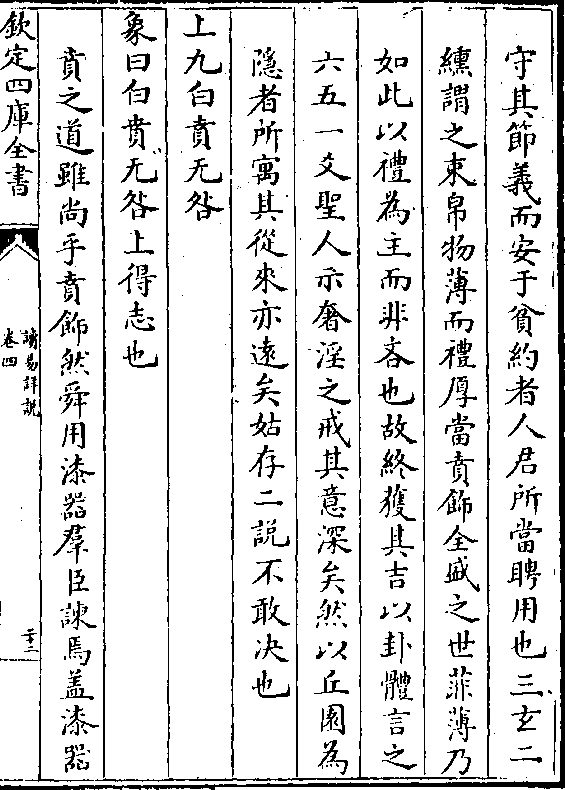 守其節義而安于貧約者人君所當聘用也三玄二
纁謂之束帛物薄而禮厚當賁飾全盛之世菲薄乃
如此以禮為主而非吝也故終獲其吉以卦體言之
六五一爻聖人示奢淫之戒其意深矣然以丘園為
隱者所寓其從來亦遠矣姑存二説不敢决也
上九白賁无咎
象曰白賁无咎上得志也
賁之道雖尚乎賁飾然舜用漆器羣臣諫焉盖漆器
欽定四庫全書
讀易詳説
卷四
二十二